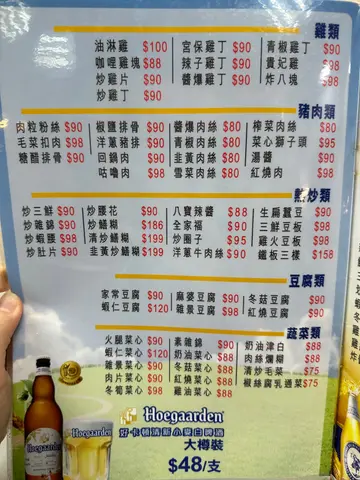 雞類
油淋雞 $100 宮保雞丁 $90 青椒雞丁 $90
咖哩雞塊 $88 辣子雞丁 $90 貴妃雞 $98
炒雞片 $90 醬爆雞丁 $90 炸八塊 $98
炒雞丁 $90
豬肉類
肉粒粉絲 $90 椒鹽排骨 $90 醬爆肉絲 $80 榨菜肉絲 $80
毛菜扣肉 $98 洋蔥豬排 $90 青椒肉絲 $80 菜心獅子頭 $95
糖醋排骨 $90 回鍋肉 $90 韭黃肉絲 $80 湯醬 $90
咕嚕肉 $98 雪菜肉絲 $80 紅燒肉 $98
熱炒類
炒三鮮 $90 炒腰花 $90 八寶辣醬 $88 生扁蠶豆 $90
炒雜錦 $90 炒鱔糊 $186 全家福 $90 三鮮豆板 $98
炒蝦腰 $98 清炒鱔糊 $199 炒圈子 $95 雞火豆板 $98
炒肚片 $90 韭黃炒鱔糊 $199 洋蔥牛肉絲 $90 鐵板三樣 $158
豆腐類
家常豆腐 $90 麻婆豆腐 $90 冬菇豆腐 $90
蝦仁豆腐 $120 雜景豆腐 $98 紅燒豆腐 $90
蔬菜類
火腿菜心 $90 素雜錦 $90 奶油津白 $88
蝦仁菜心 $120 奶油菜心 $88 肉絲爛糊 $88
雜景菜心 $90 冬菇菜心 $88 清炒毛菜 $75
肉片菜心 $90 紅燒菜心 $88 椒絲腐乳通菜 $75
冬筍菜心 $98 雞油菜心 $88
Hoegaarden
好卡頓清新小麥白啤酒
大樽裝
$48/支